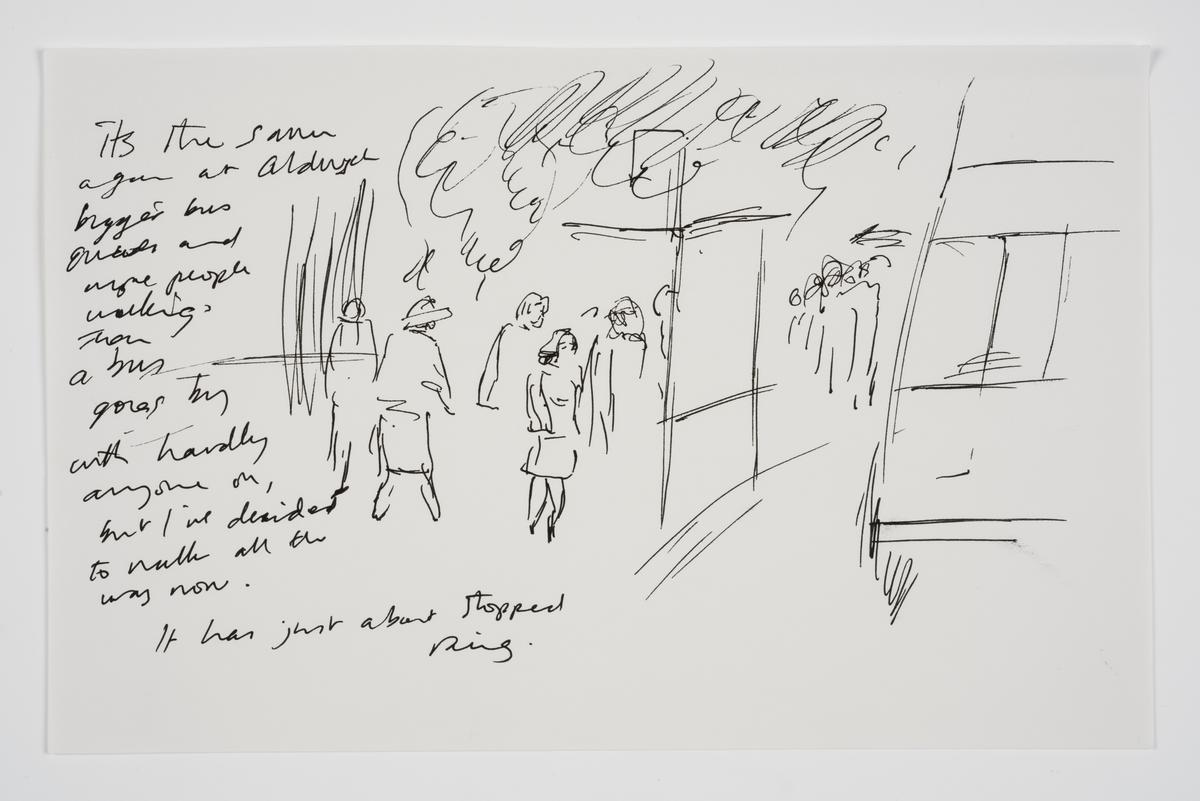 its the same
again at Aldwych
bigger bus
queues and
more people
walking.
Then
a bus
goes by
with hardly
anyone on,
but I've decided
to walk all the
way now.
It has just about stopped
raining.